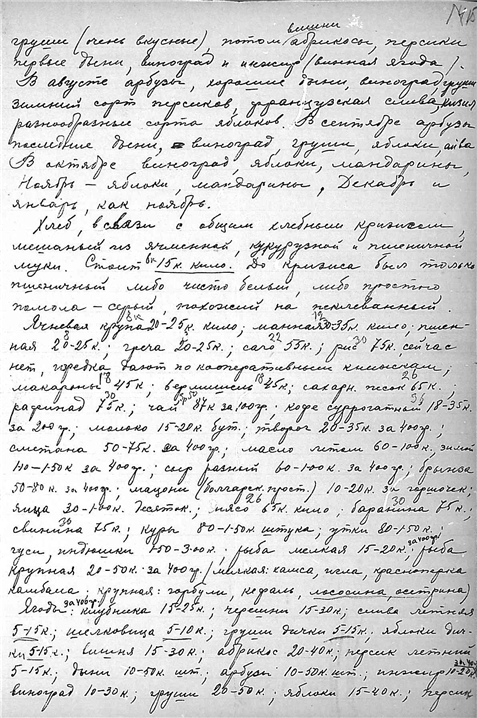 вишни
груши (очень вкусные), потом абрикосы, персики
первые дыни, виноград и инжир (винная ягода).
В августе арбузы, хорошие дыни, виноград, груши
зимний сорт персиков, французская слива, кизил
разнообразные сорта яблоков. В сентябре арбузы
последние дыни, виноград, груши, яблоки, айва
В октябре виноград, яблоки, мандарины,
Ноябрь – яблоки, мандарины, Декабрь и
январь, как ноябрь.
Хлеб, в связи с общим хлебным кризисом,
мешаный из ячменной, кукурузной и пшеничной
муки. Стоит 15 к. кило. До кризиса был только
пшеничный либо чисто белый, либо простого
помола – серый, похожий на пеклеванный.
Ячневая крупа 20-25к. кило; манная 30-35к. кило; пшен-
ная 20-25к.; греча 20-25к.; саго 55к.; рис 75к. сейчас
нет, изредка дают по кооперативным книжкам;
макароны 45к.; вермишель 45к.; сахарн. песок 65к.;
рафинад 75к.; чай 87к за 100гр.; кофе суррогатный 18-35к.
за 200гр.; молоко 15-20к. бут.; творог 20-35к. за 400гр.;
сметана 50-75к. за 400гр.; масло летом 60-100к. зимой
110-1-50к за 400гр.; сыр разный 60-100к. за 400гр.; брынза
50-80к. за 400гр.; мацони (болгарск. прост.) 10-20к. за горшочек;
яйца 30-100к. десяток; мясо 65к. кило; баранина 75к.;
свинина 75к.; куры 80-1-50к. штука; утки 80-1-50к.;
гуси, индюшки 1-50-3-00к.; рыба мелкая 15-20к.; рыба
за 400гр.
крупная 20-50к. за 400гр. (мелкая: хамса, игла, красноперка
камбала; крупная: горбули, кефаль, лососина, осетрина)
Ягоды: клубника 15-25к.; черешни 15-30к.; слива летняя
за 400гр.
5-15к.; шелковица 5-10к.; груши дички 5-15к., яблоки дич-
ки 5-15к.; вишня 15-30к.; абрикос 20-40к.; персик летний
5-15к.; дыни 10-50к. шт.; арбузы 10-50к. шт.; инжир 10-25к.
виноград 10-30к.; груши 20-50к.; яблоки 15-40к.; персик